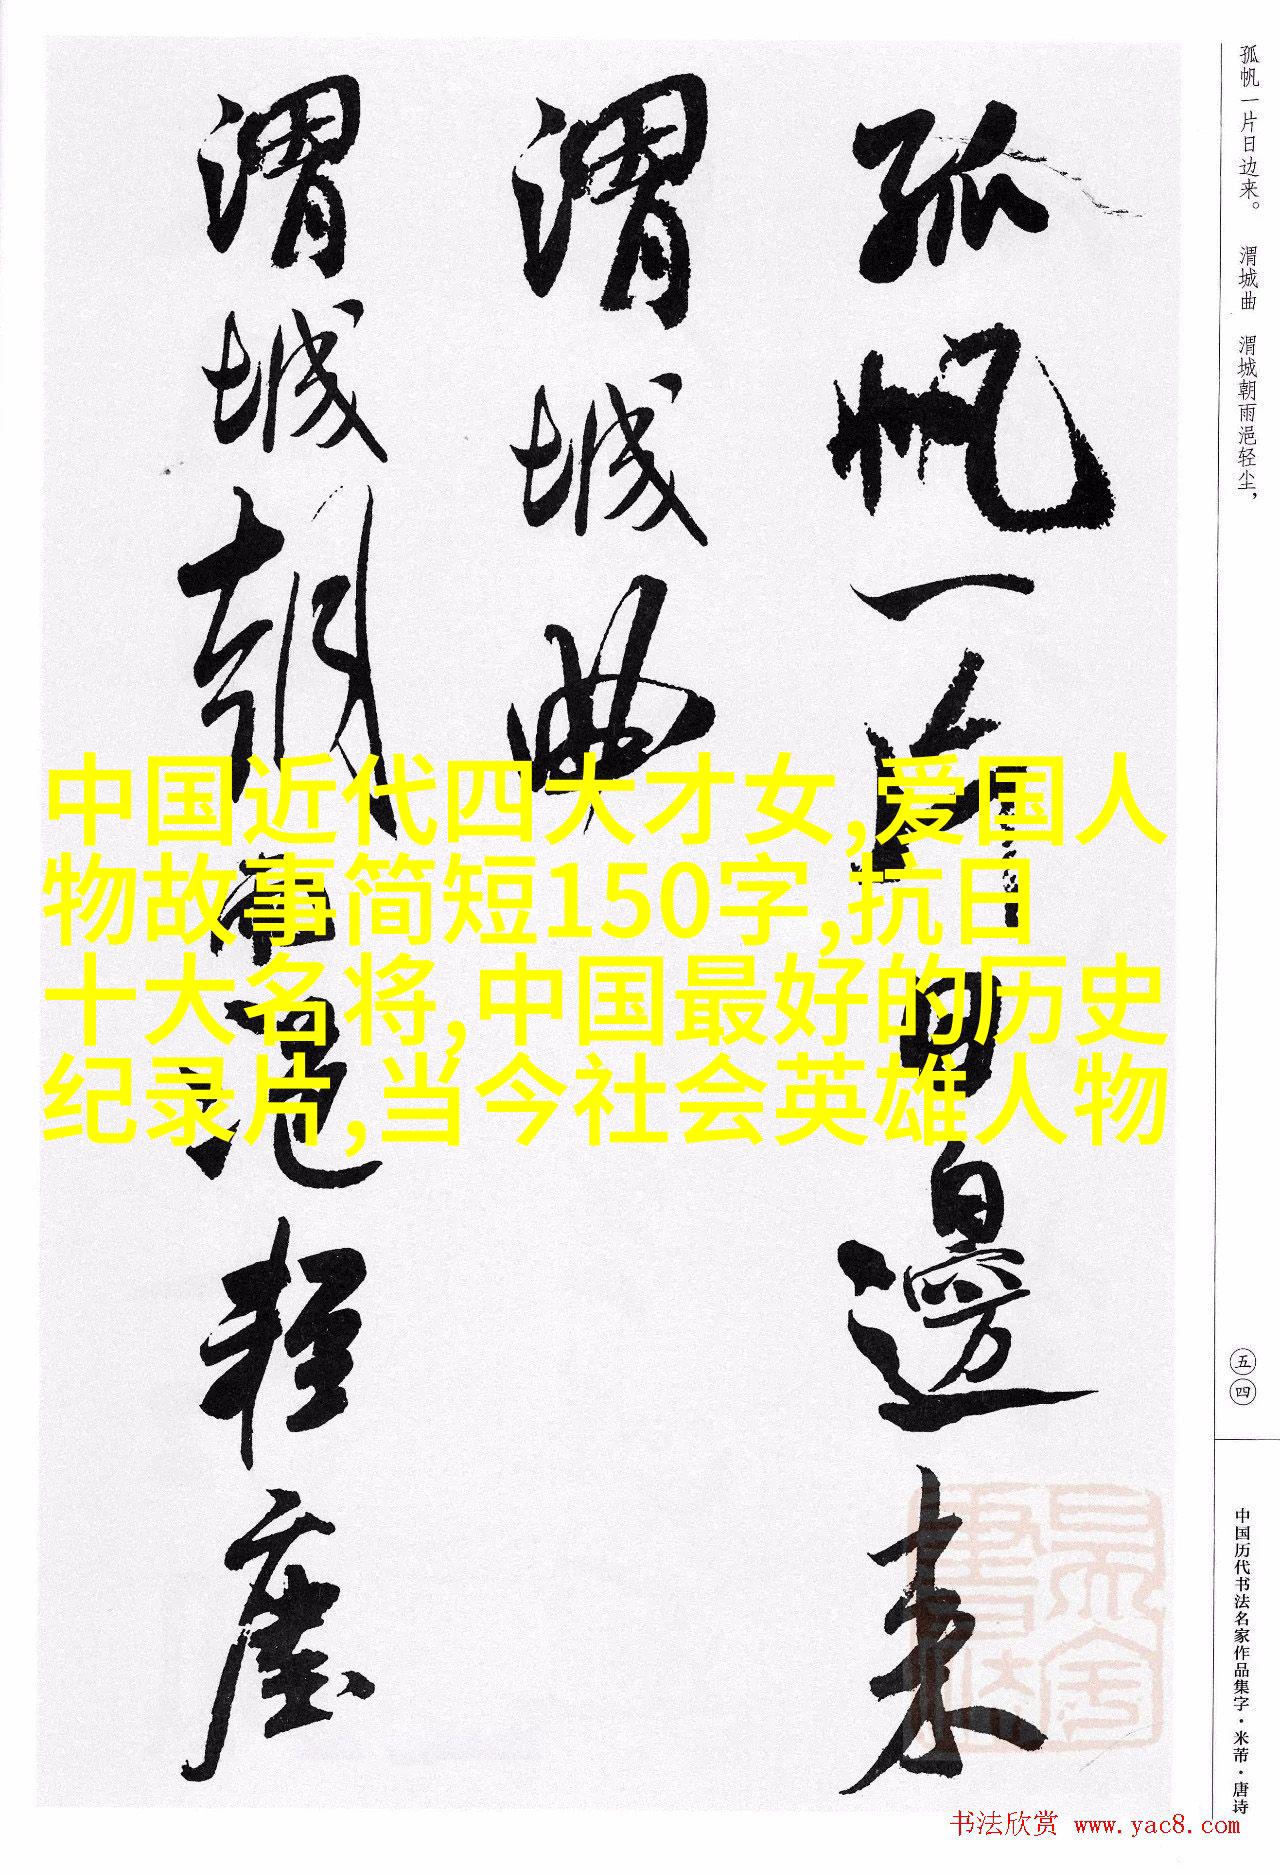 孤帆一片日边来。 渭城曲 渭城朝雨浥轻尘，
孤帆一片日邊来
渭城曲
渭城朝雨浥轻塵
中国近代四大才女,爱国人
物故事简短150字,抗日
十大名将,中国最好的历史
纪录片,当今社会英雄人物
五四
中国历代书法名家作品集字·米芾·唐诗
书法欣赏 www.yac8.com